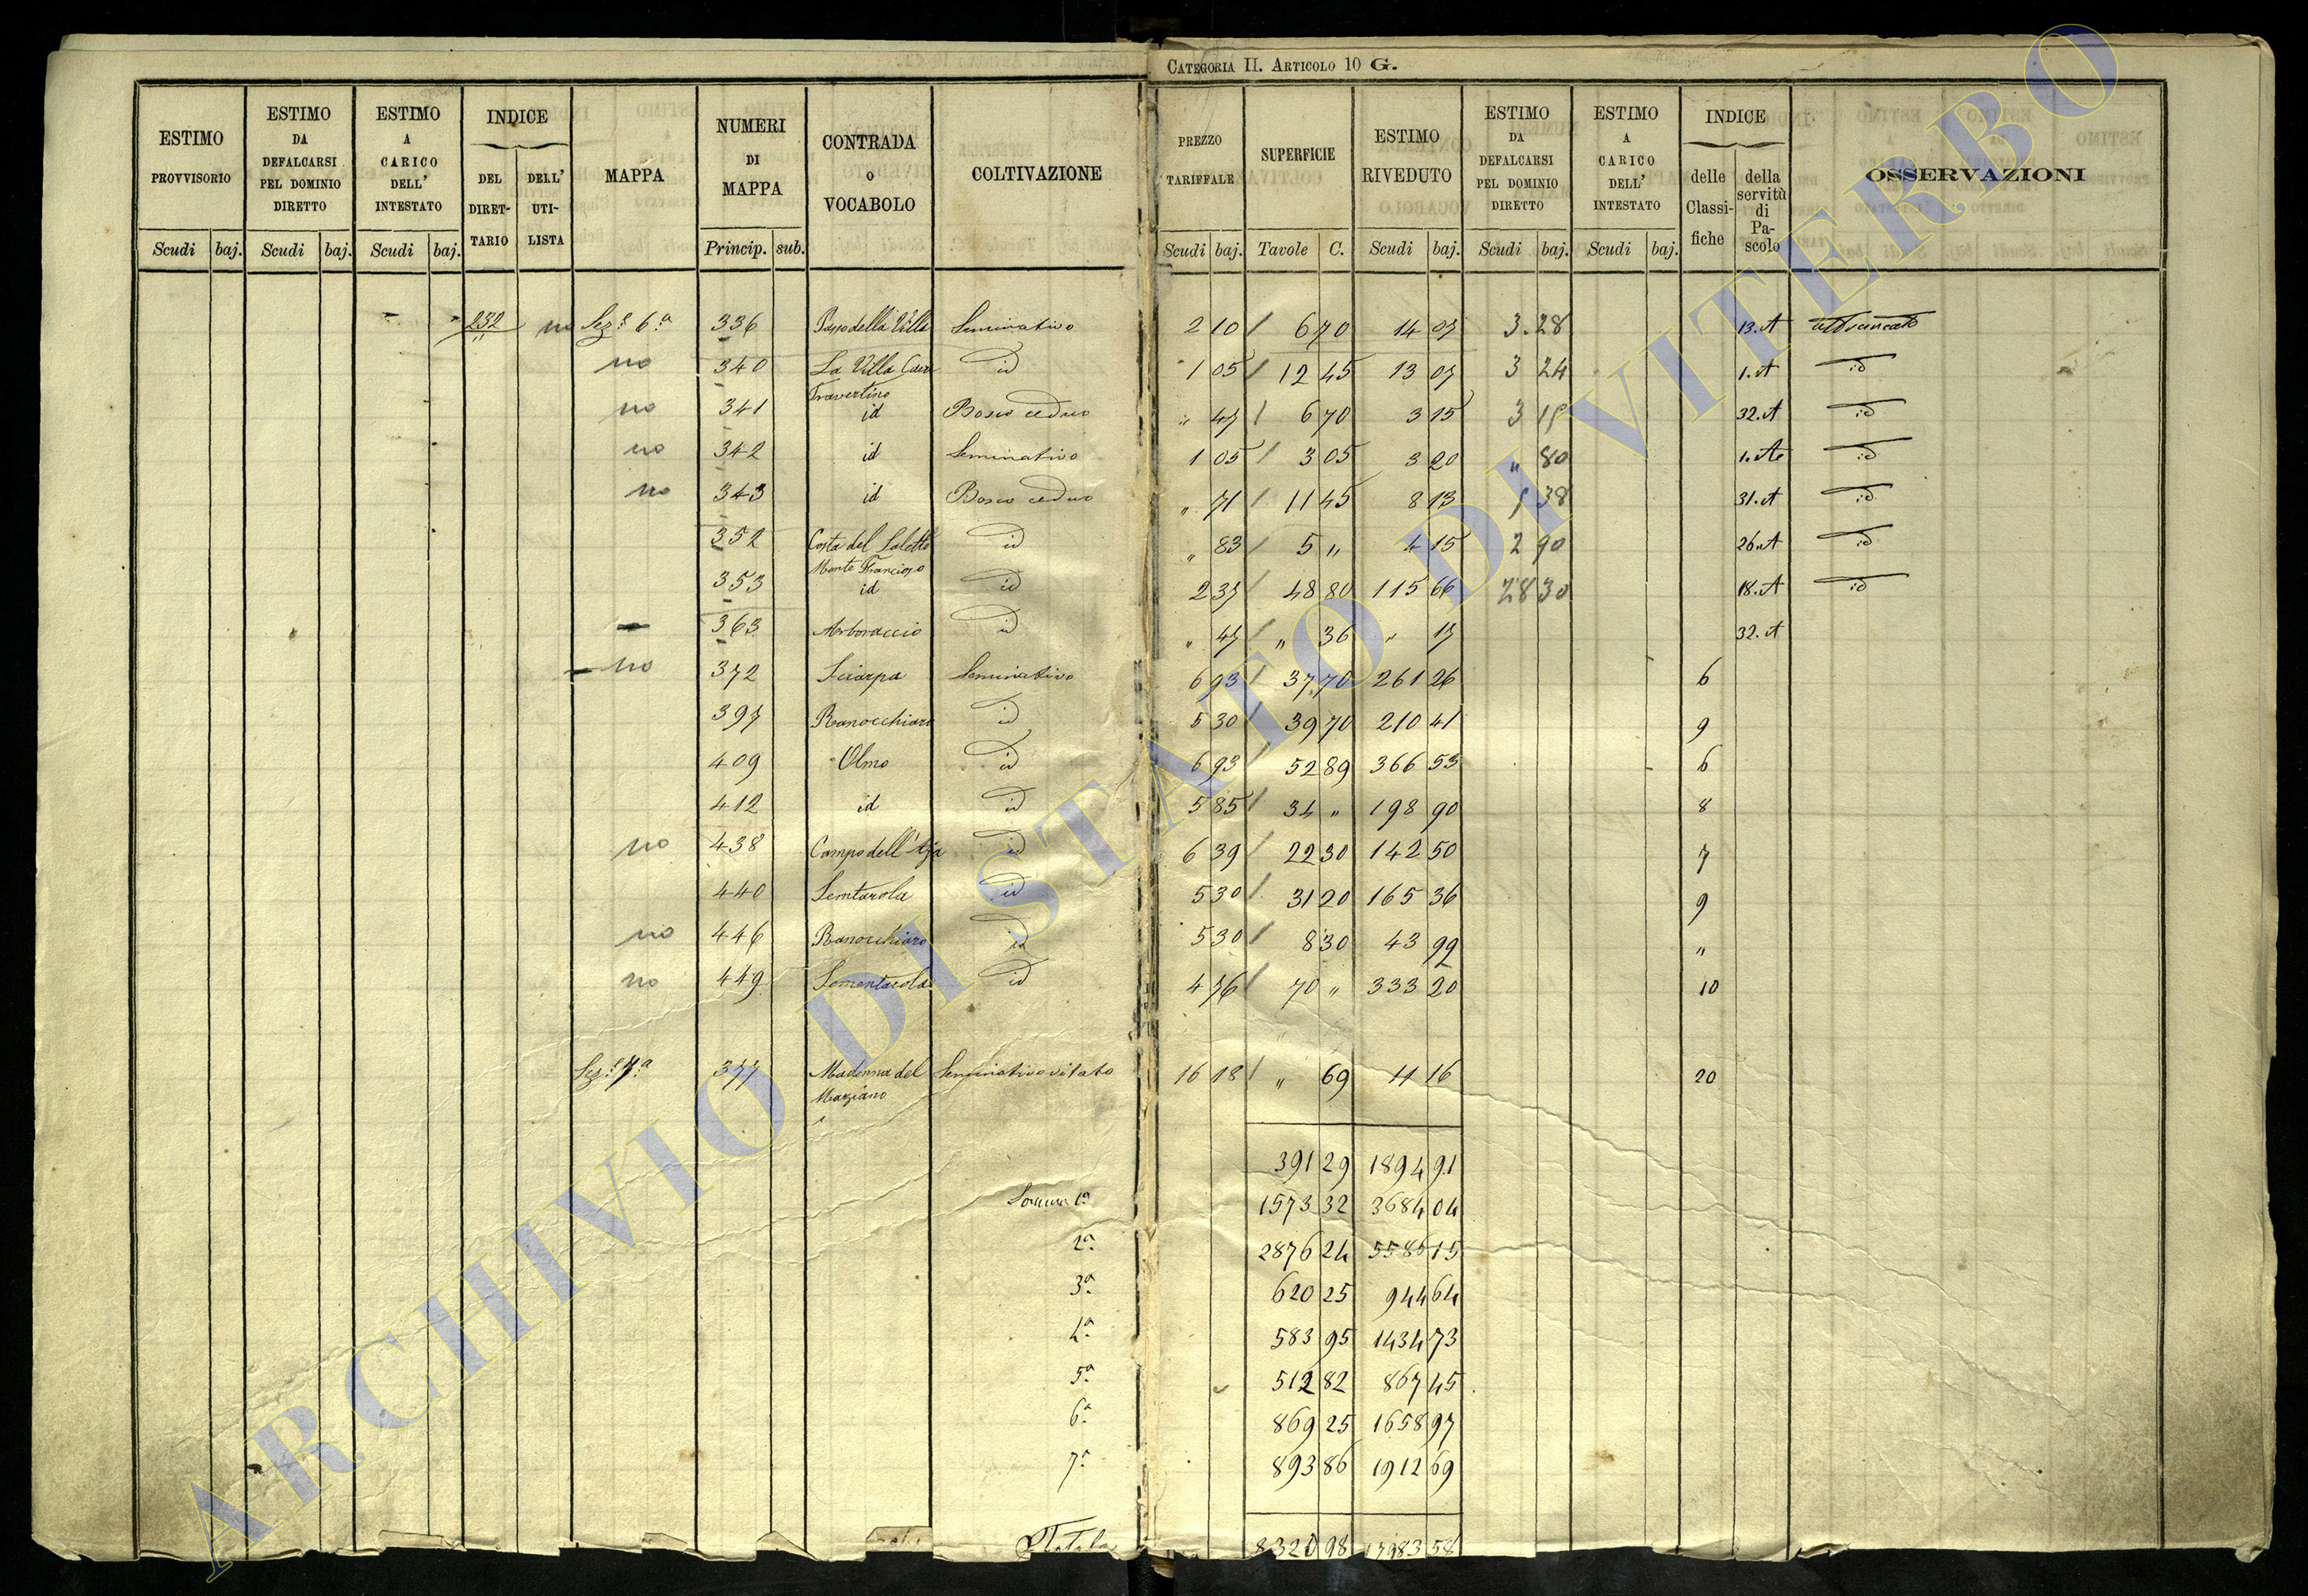 CATEGORIA II. ARTICOLO 10 G.
ESTIMO PROVVISORIO
ESTIMO DA DEFALCARSI PEL DOMINIO DIRETTO
ESTIMO A CARICO DELL' INTESTATO
INDICE
DEL DIRETTARIO
DELL' UTILISTA
MAPPA
NUMERI DI MAPPA
CONTRADA O VOCABOLO
COLTIVAZIONE
PREZZO TARIFFALE
SUPERFICIE
ESTIMO RIVEDUTO
ESTIMO DA DEFALCARSI PEL DOMINIO DIRETTO
ESTIMO A CARICO DELL' INTESTATO
INDICE
delle Classifiche
della servitù di Pascolo
OSSERVAZIONI
Scudi baj. Scudi baj. Scudi baj. Princip. sub. Scudi baj. Tavole C. Scudi baj. Scudi baj. Scudi baj.
232 no Sez.e 6.a 336 Passo della Villa Seminativo 2 10 6 70 14 07 3.28 13.A
no 340 La Villa Cava Travertino id 1 05 12 45 13 07 3 24 1.A id
no 341 id Bosco ceduo " 47 6 70 3 15 3 15 32.A id
no 342 id Seminativo 1 05 3 05 3 20 " 80 id
no 343 id Bosco ceduo " 71 11 45 8 13 38 31.A id
352 Costa del id " 83 5 " 4 15 2 90 26.A id
Monte Francioso
353 id id 2 37 48 80 115 66 28 30 18.A id
363 Arboraccio id " 47 " 36 " 17 32.A
no 372 Sciarpa Seminativo 6 93 37 70 261 26 6
397 Ranocchiaro id 5 30 39 70 210 41 9
409 Olmo id 6 93 52 89 366 53 6
412 id id 5 85 34 " 198 90 8
no 438 Campo dell'Aja id 6 39 22 30 142 50 7
440 Sentarola id 5 30 31 20 165 36 9
no 446 Ranocchiaro id 5 30 8 30 43 99 "
no 449 Sementarola id 4 76 70 " 333 20 10
Sez.e 7.a 377 Madonna del Marziano Seminativo vitato 16 18 " 69 11 16 20
391 29 1894 91
Somma 1a 1573 32 3684 04
2a 2876 24 5586 15
3a 620 25 944 64
4a 583 95 1434 73
5a 512 82 867 45
6a 869 25 1658 97
7a 893 86 1912 69
Totale 8320 98 17983 58
ARCHIVIO DI STATO DI VITERBO